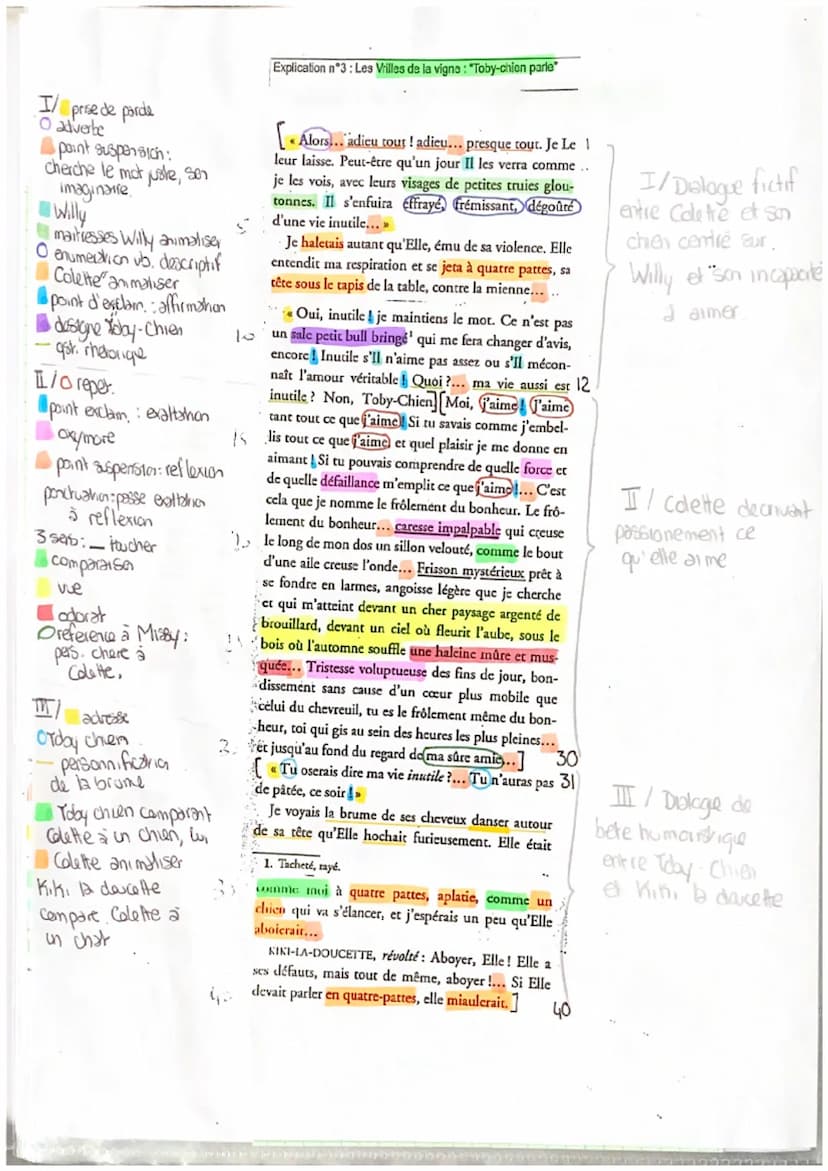 Explication n°3 : Les Vrilles de la vigne : "Toby-chien parle"
I/ prise de parole
adverbe
point suspension :
cherche le mot juste, son
imaginaire.
Willy
maitresses Willy animaliser
enumeration vb. descriptif
Colette animaliser
point d'esclam. : affirmation
designe Toby-Chien
qst. rhetorique
II/ O repet.
point exclam. : exaltation
oxymore
point suspension : reflexion
ponctuation : passe exaltation
à reflexion
3 sens : toucher
comparaison
vue
odorat
O reference à Missy :
pers. chere à
Colette.
III/ adresse
O Toby chien
personnification
de la brume
Toby chien comparant
Colette à un chien, lui
Colette animaliser
Kiki la doucette
compare Colette à
un chat
[ « Alors... adieu tout ! adieu... presque tout. Je Le 1
leur laisse. Peut-être qu'un jour Il les verra comme
je les vois, avec leurs visages de petites truies glou-
tonnes. Il s'enfuira effrayé, frémissant, dégoûté
5
d'une vie inutile... »
Je haletais autant qu'Elle, ému de sa violence. Elle
entendit ma respiration et se jeta à quatre pattes, sa
tête sous le tapis de la table, contre la mienne...
« Oui, inutile ! je maintiens le mot. Ce n'est pas
10 un sale petit bull bringé¹ qui me fera changer d'avis,
encore ! Inutile s'Il n'aime pas assez ou s'Il mécon-
naît l'amour véritable ! Quoi ?... ma vie aussi est 12
inutile ? Non, Toby-Chien] [Moi, j'aime ! J'aime
tant tout ce que j'aime ! Si tu savais comme j'embel-
15 lis tout ce que j'aime, et quel plaisir je me donne en
aimant ! Si tu pouvais comprendre de quelle force et
de quelle défaillance m'emplit ce que j'aime !... C'est
cela que je nomme le frôlement du bonheur. Le frô-
lement du bonheur... caresse impalpable qui creuse
le long de mon dos un sillon velouté, comme le bout
d'une aile creuse l'onde... Frisson mystérieux prêt à
se fondre en larmes, angoisse légère que je cherche
et qui m'atteint devant un cher paysage argenté de
brouillard, devant un ciel où fleurit l'aube, sous le
bois où l'automne souffle une haleine mûre et mus-
quée... Tristesse voluptueuse des fins de jour, bon-
dissement sans cause d'un cœur plus mobile que
celui du chevreuil, tu es le frôlement même du bon-
heur, toi qui gis au sein des heures les plus pleines...
et jusqu'au fond du regard de ma sûre amie...] 30
[ « Tu oserais dire ma vie inutile ?... Tu n'auras pas 31
de pâtée, ce soir ! »
Je voyais la brume de ses cheveux danser autour
de sa tête qu'Elle hochait furieusement. Elle était
1. Tacheté, rayé.
comme moi à quatre pattes, aplatie, comme un
chien qui va s'élancer, et j'espérais un peu qu'Elle
aboierait...
KIKI-LA-DOUCETTE, révolté : Aboyer, Elle ! Elle a
ses défauts, mais tout de même, aboyer !... Si Elle
devait parler en quatre-pattes, elle miaulerait. ]
40
I/ Dialogue fictif
entre Colette et son
chien centré sur
Willy et son incapacité
à aimer
II/ Colette decrivant
passionement ce
qu'elle aime
III/ Dialoge de
bete humoristique
entre Toby-Chien
et Kiki la doucette